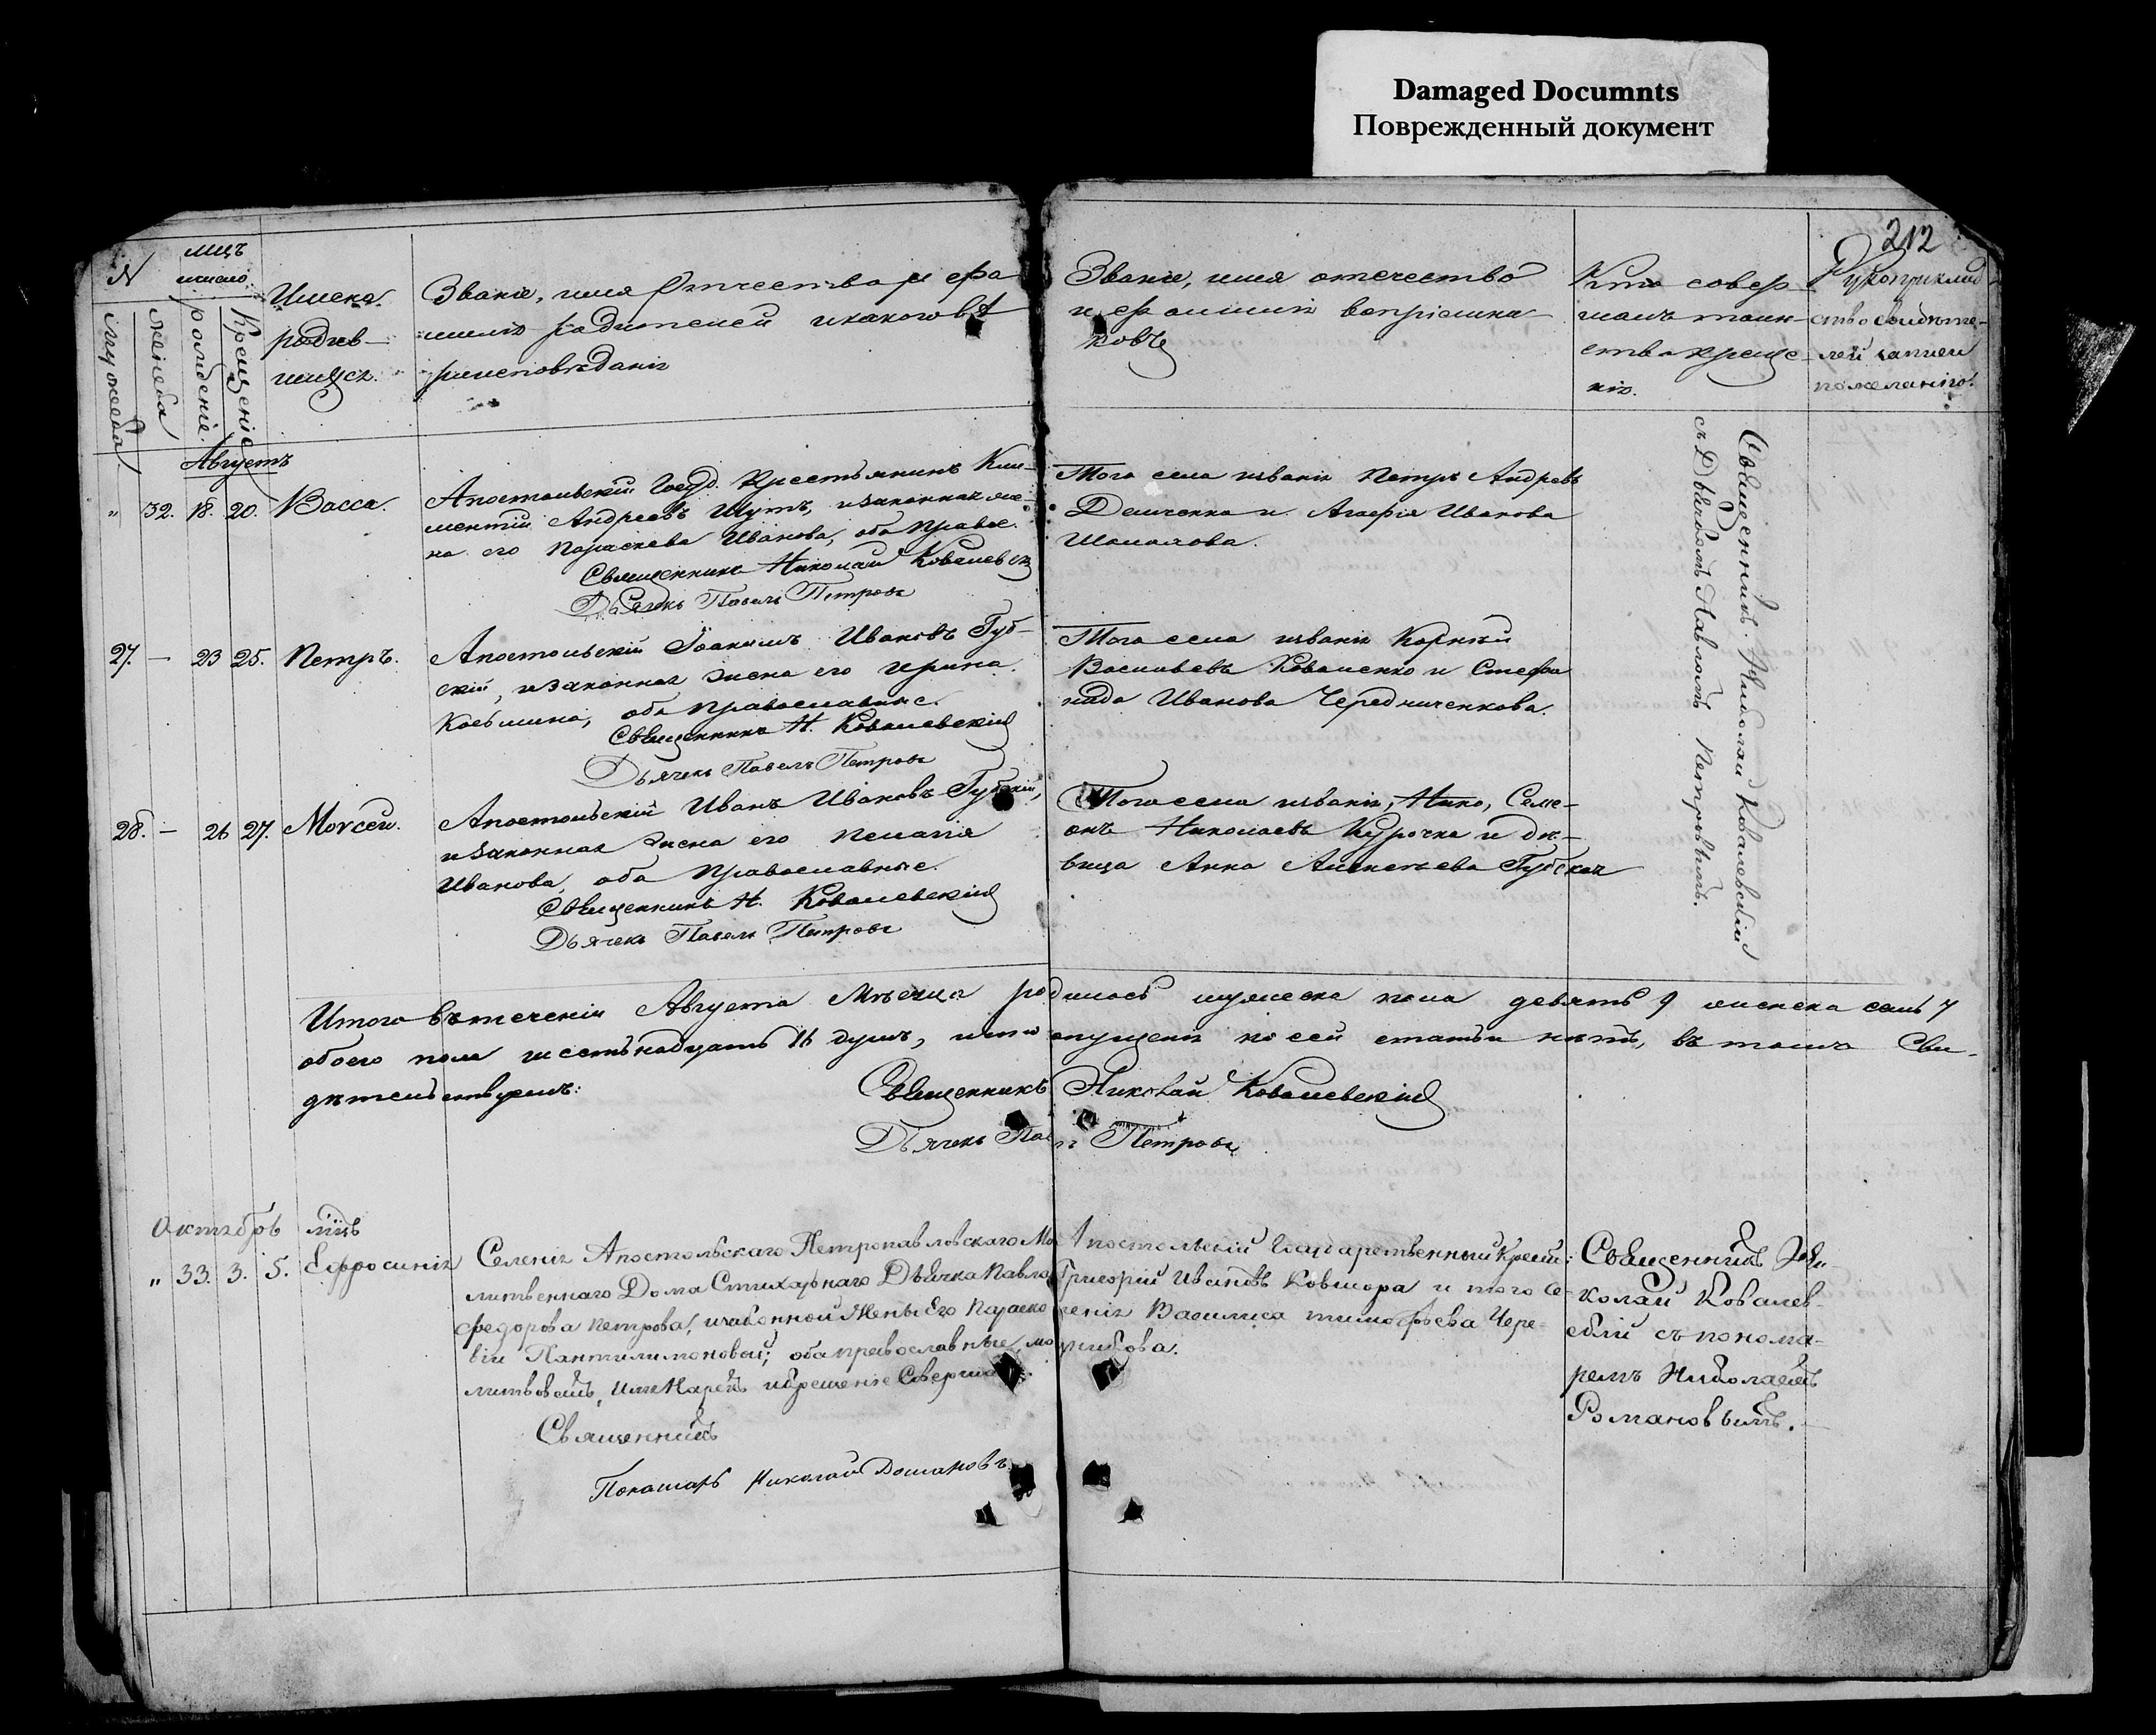 Damaged Documnts
Поврежденный документ
212
N
мцъ
число
мужеска
женска
рожденіе.
Крещеніе
Имена
родив–
шихся.
Званіе, имя Отчество и фа
милія родителей и какого вѣ
роисповѣданія
Званіе, имя отечество
и фамилія воспріемни
ковъ
Кто совер–
шалъ таин–
ство креще–
нія.
Рукоприклад
ство свидѣте–
лей записи
по желанію.
Августъ
" 32. 18. 20. Васса.
Апостольскій Госуд. Крестьянинъ Кли–
ментій Андреевъ Шутъ, и законная же–
на его Параскева Иванова, оба правос.
Священникъ Николай Ковалевск
Дьячекъ Павелъ Петровъ
Того села званія Петръ Андреевъ
Демченко и Агафія Иванова
27. — 23 25. Петръ.
Апостольскій Іоакимъ Ивановъ Губ–
скій, и законная жена его Ирина
Косьмина, оба православные.
Священникъ Н. Ковалевскій
Дьячекъ Павелъ Петровъ
Того села званія Корнѣй
Васильевъ Коваленко и Стефа
нида Иванова Чередниченкова.
28. — 26 27. Моѵсей.
Апостольскій Иванъ Ивановъ Губскій,
и законная жена его Пелагія
Иванова, оба православные.
Священникъ Н. Ковалевскій
Дьячекъ Павелъ Петровъ
Того села званія, Нико, Семе–
онъ Николаевъ Курочка и дѣ–
вица Анна Алексѣева Губская
Священникъ Николай Ковалевскій
съ Дьячкомъ Павломъ Петровымъ.
Итого въ теченіи Августа Мѣсяца родилось мужеска пола девять 9 женска семь 7
обоего пола шестьнадцать 16 душъ, что опущенія по сей статьи нѣтъ, въ томъ Сви–
дѣтельствуемъ:
Священникъ Николай Ковалевскій
Дьячекъ Павелъ Петровъ
Октябрь мцъ
" 33. 3. 5. Ефросинія
Селенія Апостольскаго Петропавловскаго Мо
литвеннаго Дома Стихарнаго Дьячка Павла
Федорова Петрова, и законной Жены Его Параско
віи Пантилимоновой; оба православные, мо
литвовалъ, имя Нарекъ и Крещеніе Соверша
Священникъ
Пономарь Николай Романовъ
Апостольскій Государственный Крест:
Григорій Ивановъ Ковшора и того Се–
ленія Василиса Тимофѣева Чере–
Священникъ Ни–
колай Ковалев–
скій съ понома–
ремъ Николаемъ
Романовымъ.